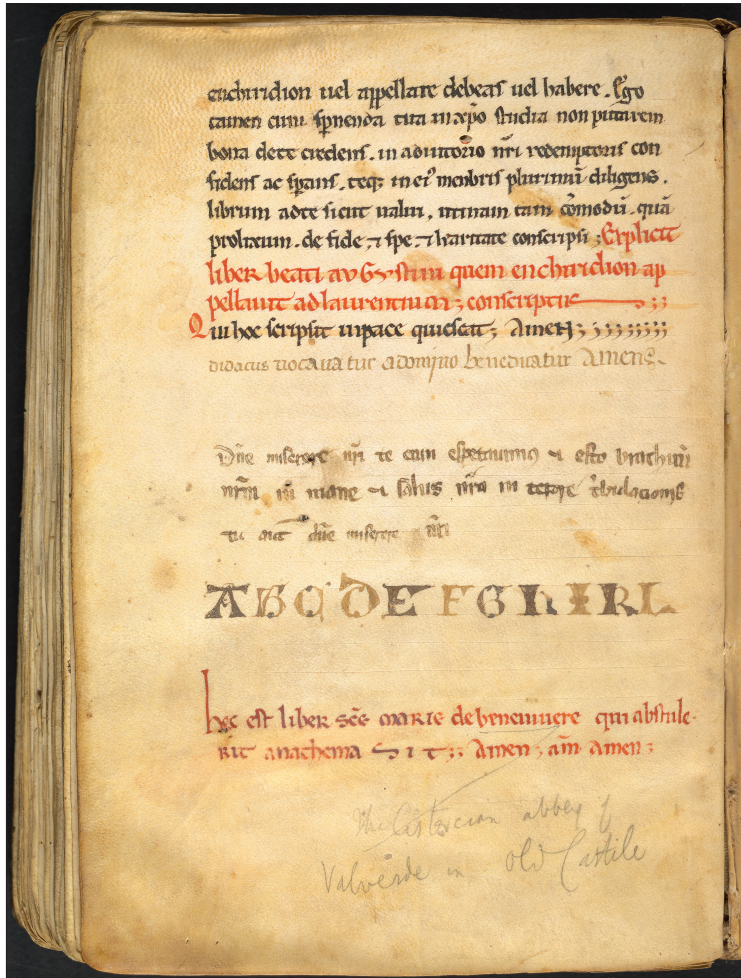 enchiridion uel appellare debeas uel habere. Ego
tamen cum spnenda tua in xp̄o studia non putarem
bona de te credens. in adiutorio nr̄i redemptoris con
fidens ac sp̄ans. teq; in ei᾽ menbris plurimū diligens.
librum ad te sicut ualui, utinam tam cōmodū. quā
prolixum. de fide ⁊ spe ⁊ karitate conscripsi; Explicit
liber beati avGvstini quem enchiridion ap
pellauit ad laurentium; conscriptus ;;
Qui hoc scripsit in pace quiescat; AmeN; ;;;;;;;
didacus uocauatur a domino benedicatur Amens.
Dn̄e miserere nr̄i te enim espetauimus ⁊ esto brachiū
nr̄m in mane ⁊ salus nr̄a in tepore t̄bulacionis
tu aut̄ dn̄e miserere nr̄i
A B C D E F G h I K L
hec est liber sc̄e marie de beneuiuere qui abstule-
rit anathema S I T;; Amen; am̄ Amen;
The Cistercian abbey of
Valverde in Old Castile